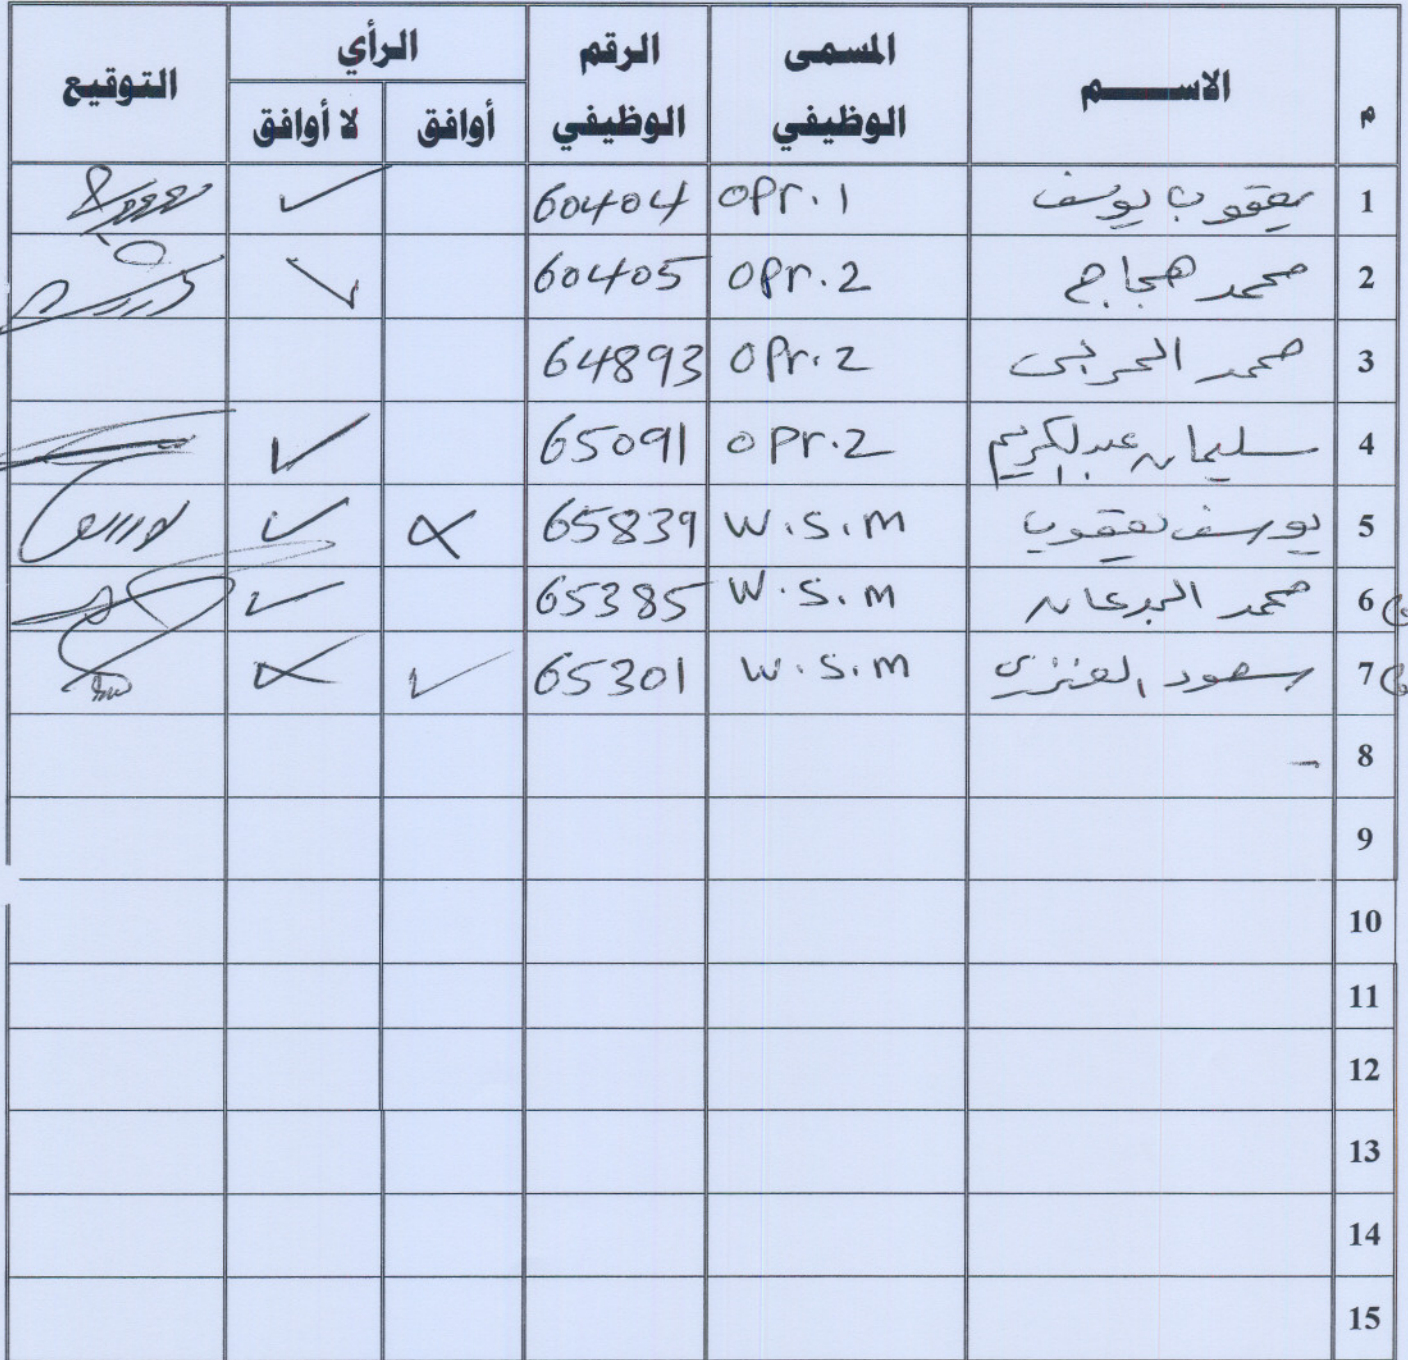 م الاســـــم المسمى الوظيفي الرقم الوظيفي الرأي التوقيع
أوافق لا أوافق
1 يعقوب يوسف opr.1 60404 ✓
2 محمد هجاج opr.2 60405 ✓
3 محمد الحربي opr.2 64893
4 سليمان عبدالكريم opr.2 65091 ✓
5 يوسف يعقوب W.S.M 65839 ✗ ✓
6 محمد الجدعان W.S.M 65385 ✓
7 سعود العنزي W.S.M 65301 ✓ ✗
8 -
9
10
11
12
13
14
15